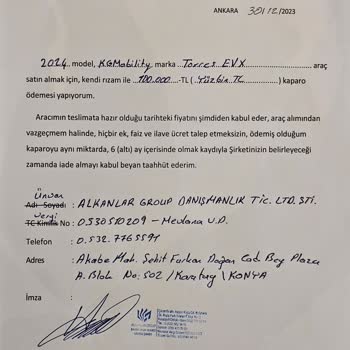 ANKARA 30/12/2023
2024 model, KGMobility marka Torres EVX araç
satın almak için, kendi rızam ile 100.000 -TL (Yüzbin TL) kaparo
ödemesi yapıyorum.
Aracımın teslimata hazır olduğu tarihteki fiyatını şimdiden kabul eder, araç alımından
vazgeçmem halinde, hiçbir ek, faiz ve ilave ücret talep etmeksizin, ödemiş olduğum
kaparoyu aynı miktarda, 6 (altı) ay içerisinde olmak kaydıyla Şirketinizin belirleyeceği
zamanda iade almayı kabul beyan taahhüt ederim.
Ünvan
Adı Soyadı : ALKANLAR GROUP DANIŞMANLIK TİC. LTD. ŞTİ.
Vergi
TC Kimlik No : 0530510209 - Mevlana V.D.
Telefon : 0.532.7765591
Adres : Akabe Mah. Şehit Furkan Doğan Cad. Bey Plaza
A. Blok No: 502 / Karatay \ KONYA
İmza :